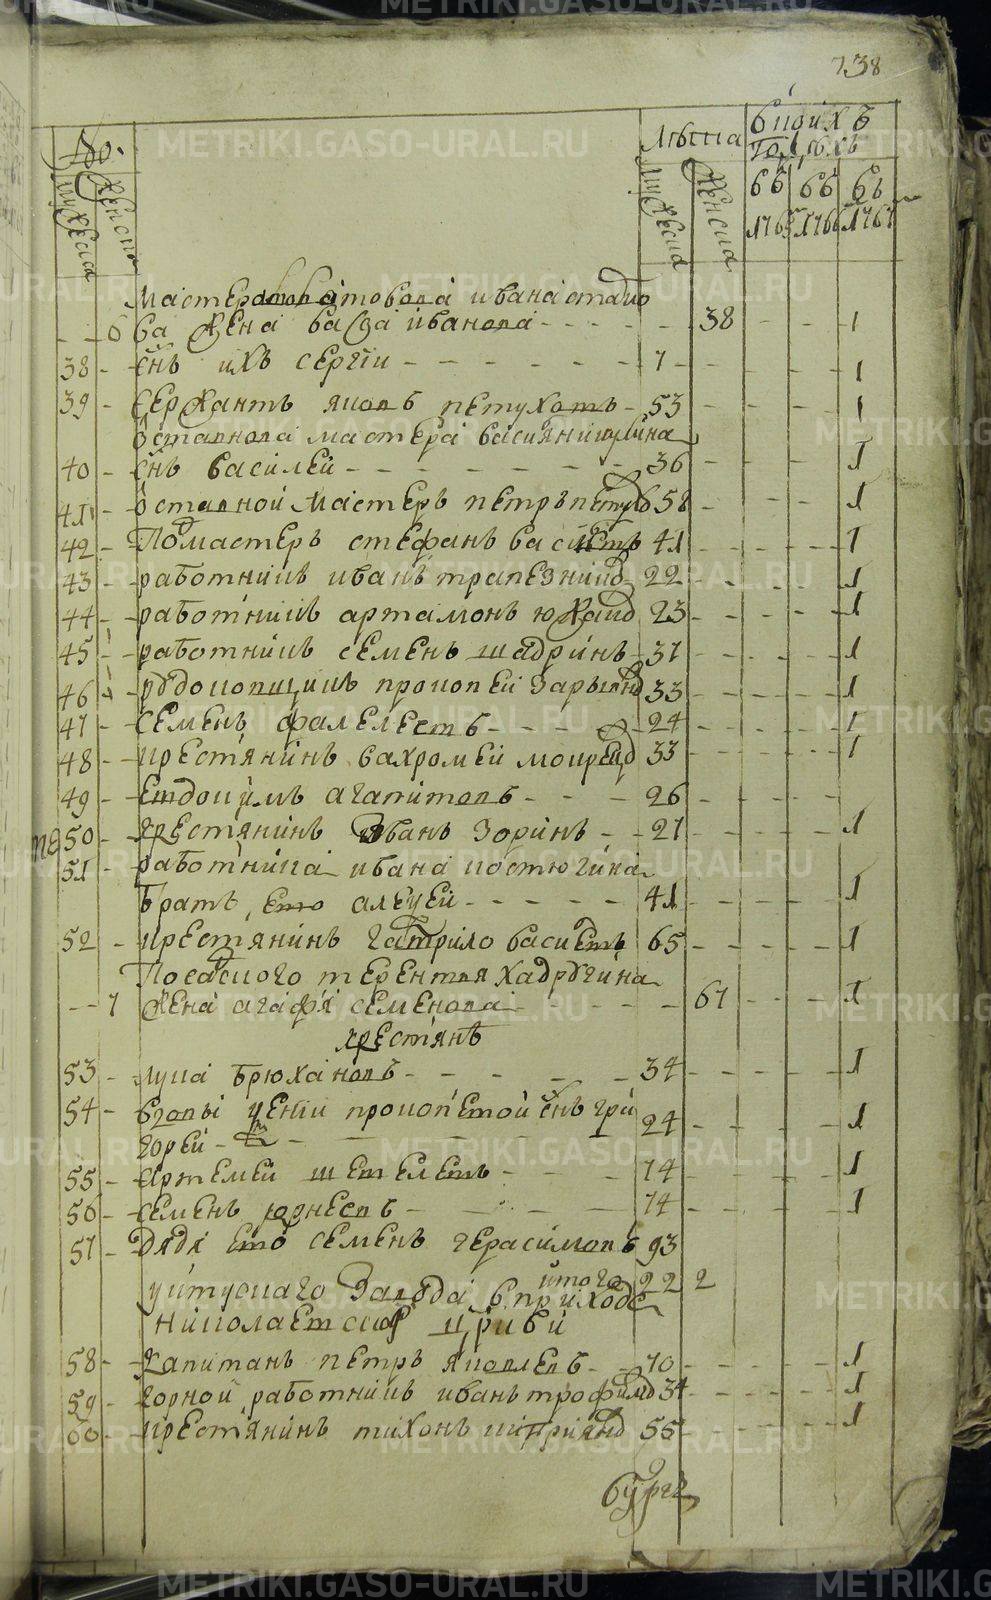 METRIKI.GASO-URAL.RU
738
№.
мужеска
женска
лѣта
мужеска
женска
в коихъ
годѣхъ
въ въ въ
1765 1766 1767
мастероваго ивана
6 ва жена васса иванова - 38 - - 1
38 - снъ ихъ сергіи - 7 - - 1
39 - сержантъ яковъ петуховъ - 53 - - 1
отставнова мастера
40 - снъ василей - 36 - - 1
41 - отставной мастеръ петръ 58 - - 1
42 - подмастеръ стефанъ 41 - - 1
43 - работникъ иванъ трапезнико 22 - - 1
44 - работникъ артамонъ 23 - - 1
45 - работникъ семенъ шадринъ - 37 - - 1
46 - рудокопщикъ прокопей 33 - - 1
47 - семенъ фалелеевъ - 24 - - 1
48 - крестянинъ вахромей мокреец 33 - - 1
49 - евдокимъ агапитовъ - 26 - -
50 - крестянинъ иванъ зоринъ - 27 - - 1
51 - работника ивана костюгина
братъ ево алеѯей - 41 - - 1
52 - крестянинъ гаврило васиевъ 65 - - 1
посадского терентия хадругина
- 7 жена агафя семенова - 67 - - 1
крестянъ
53 - лука брюхановъ - 34 - - 1
54 - вдовы прокопевой снъ гри
горей - 24 - - 1
55 - артемей шевелевъ - 74 - - 1
56 - семенъ юрневъ - 74 - - 1
57 - дядя ево семенъ герасимовъ 93
итого 22 2
уктускаго завода в приходе
николаевской цркви
58 - капитанъ петръ яковлевъ - 70 - - 1
59 - горной работникъ иванъ трофимо 34 - - 1
60 - крестянинъ тихонъ 55 - - 1